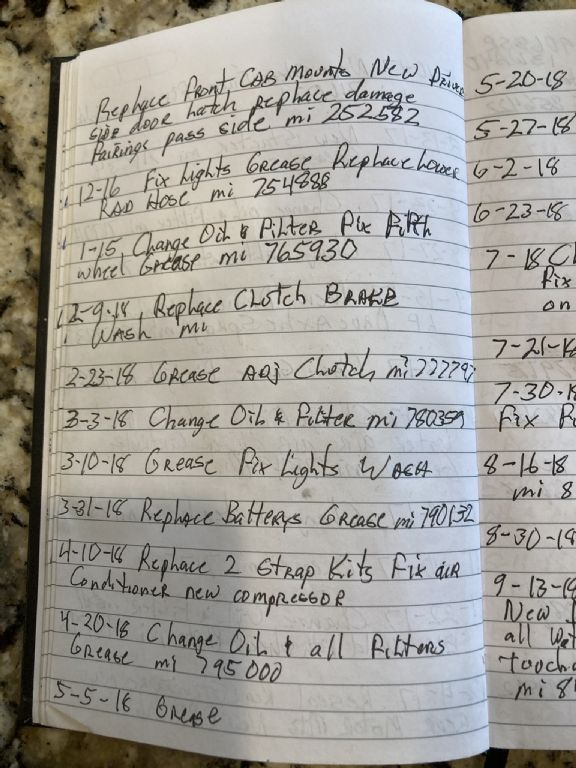 Rephace Front CAB mounts New Driver
side door hatch rephace damage
Fairings pass side mi 252582
12-16 Fix Lights Grease Rephace Lower
RAD Hose mi 754888
1-15 Change Oil & Filter Fix Fifth
wheel Grease mi 765930
2-9-18 Rephace Clutch BRAKE
Wash mi
2-23-18 Grease ADj Clutch mi 77779
3-3-18 Change Oil & Filter mi 780359
3-10-18 Grease Fix Lights Wash
3-31-18 Rephace Batterys Grease mi 790132
4-10-18 Rephace 2 Strap Kits Fix air
Conditioner new compressor
4-20-18 Change Oil & all Filters
Grease mi 795000
5-5-18 Grease
5-20-18
5-27-18
6-2-18
6-23-18
7-18
Fix
on
7-21-18
7-30-18
Fix
8-16-18
mi 8
8-30-18
9-13-18
New
all
touch
mi 8